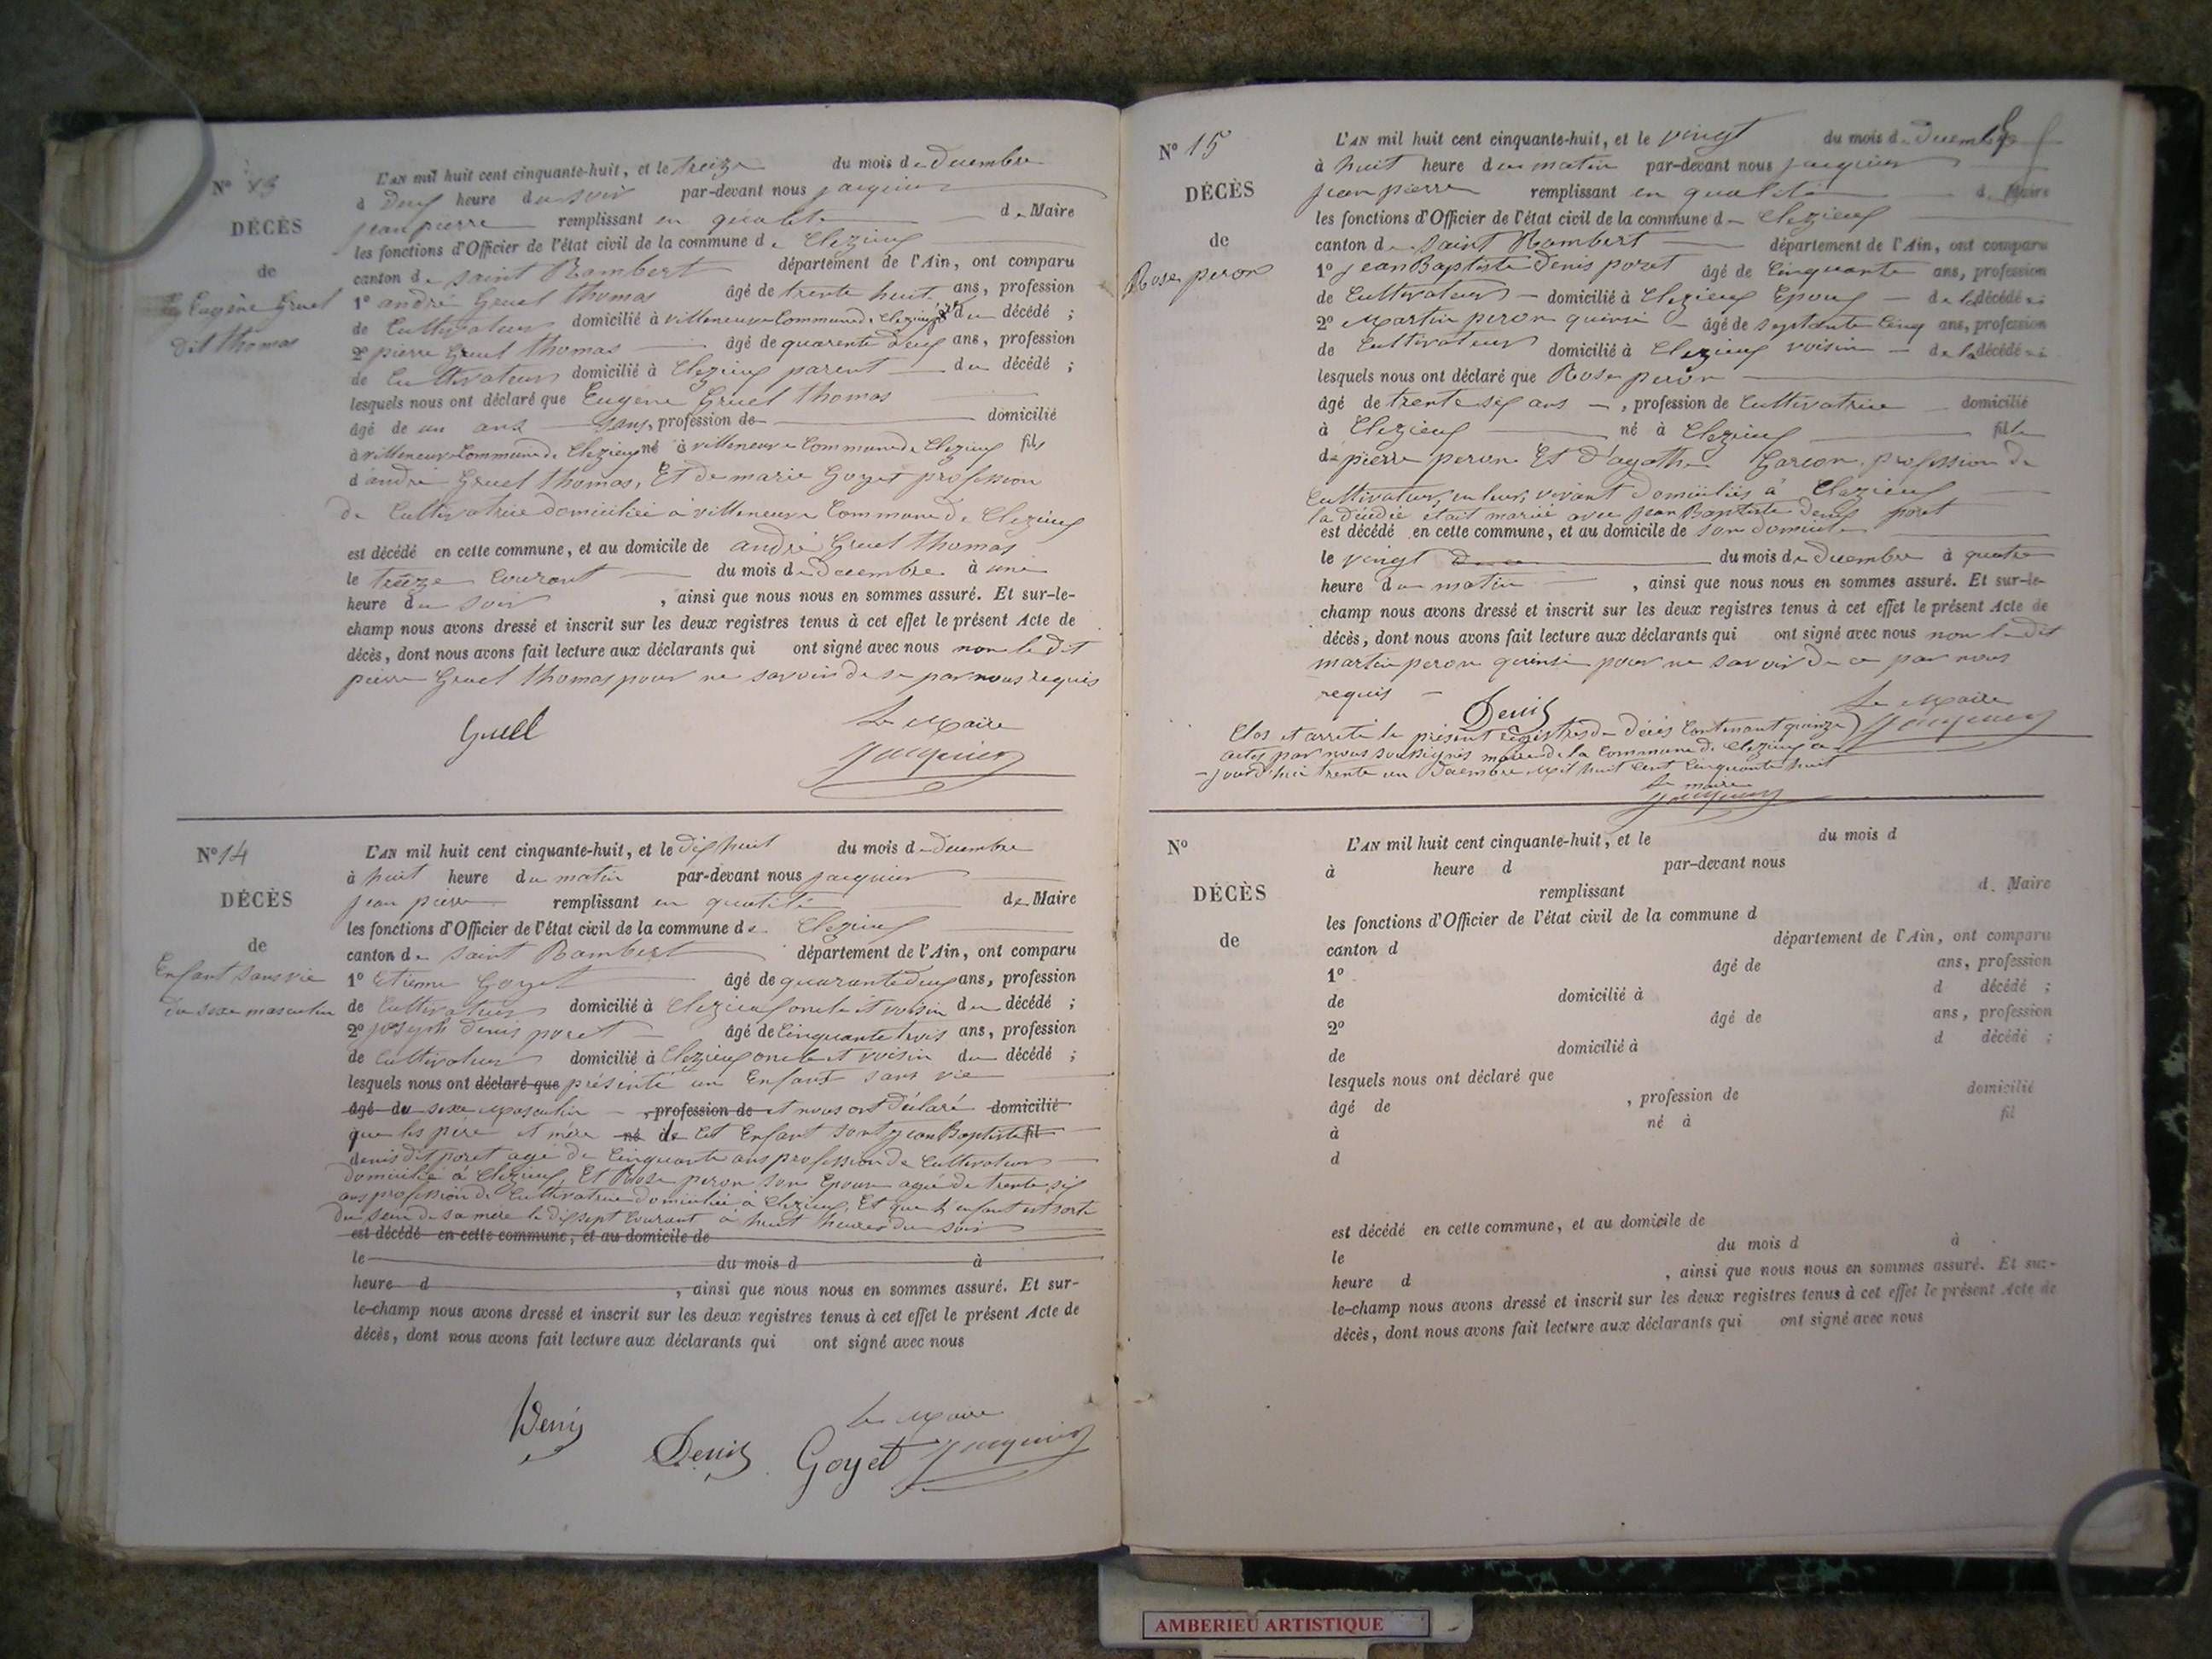 N° 13
DÉCÈS
de
Eugène Gruel
dit thomas
L'AN mil huit cent cinquante-huit, et le treize du mois de decembre
à deux heure du soir par-devant nous jacquier
jean pierre remplissant en qualité de Maire
les fonctions d'Officier de l'état civil de la commune de Clezieux
canton de saint Rambert département de l'Ain, ont comparu
1° andré Gruel thomas âgé de trente huit ans, profession
de Cultivateur domicilié à villeneuve Commune de Clezieux du décédé ;
2° pierre Gruel thomas âgé de quarente deux ans, profession
de Cultivateur domicilié à Clezieux parent du décédé ;
lesquels nous ont déclaré que Eugene Gruel thomas
âgé de un ans sans, profession de domicilié
à villeneuve Commune de Clezieux né à villeneuve Commune de Clezieux fils
d'andré Gruel thomas, Et de marie Goyet profession
de Cultivatrice domiciliée à villeneuve Commune de Clezieux
est décédé en cette commune, et au domicile de andré Gruel thomas
le treize Courant du mois de decembre à une
heure du soir , ainsi que nous nous en sommes assuré. Et sur-le-
champ nous avons dressé et inscrit sur les deux registres tenus à cet effet le présent Acte de
décès, dont nous avons fait lecture aux déclarants qui ont signé avec nous non le dit
pierre Gruel thomas pour ne savoir de ce par nous requis
Gruel
Le Maire
Jacquier
N° 14
DÉCÈS
de
Enfant sans vie
du sexe masculin
L'AN mil huit cent cinquante-huit, et le dix huit du mois de decembre
à huit heure du matin par-devant nous jacquier
jean pierre remplissant en qualité de Maire
les fonctions d'Officier de l'état civil de la commune de Clezieux
canton de saint Rambert département de l'Ain, ont comparu
1° Etienne Goyet âgé de quarante deux ans, profession
de Cultivateur domicilié à Clezieux oncle et voisin du décédé ;
2° joseph denis poret âgé de Cinquante trois ans, profession
de Cultivateur domicilié à Clezieux oncle et voisin du décédé ;
lesquels nous ont déclaré que présenté un Enfant sans vie
âgé de du sexe Masculin , profession de et nous ont déclaré domicilié
que les père et mère né de Cet Enfant sont jean Baptiste fil
denis dit poret agé de Cinquante ans profession de Cultivateur
domicilié à Clezieux, Et Rose peron son Epouse agée de trente six
ans profession de Cultivatrice domiciliée à Clezieux, Et que l'enfant est sorti
du sein de sa mère le dix sept Courant à huit heures du soir
est décédé en cette commune, et au domicile de
le du mois d à
heure d , ainsi que nous nous en sommes assuré. Et sur-
le-champ nous avons dressé et inscrit sur les deux registres tenus à cet effet le présent Acte de
décès, dont nous avons fait lecture aux déclarants qui ont signé avec nous
Le Maire
Denis Denis Goyet Jacquier
N° 15
DÉCÈS
de
Rose peron
L'AN mil huit cent cinquante-huit, et le vingt du mois de decembre
à huit heure du matin par-devant nous jacquier
jean pierre remplissant en qualité de Maire
les fonctions d'Officier de l'état civil de la commune de Clezieux
canton de saint Rambert département de l'Ain, ont comparu
1° jean Baptiste denis poret âgé de Cinquante ans, profession
de Cultivateur domicilié à Clezieux Epoux de la décédée
2° Martin peron quinsi âgé de septante Cinq ans, profession
de Cultivateur domicilié à Clezieux voisin de la décédée
lesquels nous ont déclaré que Rose peron
âgé de trente six ans , profession de Cultivatrice domicilié
à Clezieux né à Clezieux fille
de pierre peron Et d'agathe Garcon, profession de
Cultivateur, en leur, vivant domiciliés à Clezieux
la décédée etait mariée avec jean Baptiste denis poret
est décédé en cette commune, et au domicile de son domicile
le vingt du mois de decembre à quatre
heure du matin , ainsi que nous nous en sommes assuré. Et sur-le-
champ nous avons dressé et inscrit sur les deux registres tenus à cet effet le présent Acte de
décès, dont nous avons fait lecture aux déclarants qui ont signé avec nous non le dit
martin peron quinsi pour ne savoir de ce par nous
requis
Denis
Le Maire
Jacquier
Clos et arrêté le présent registre de décès Contenant quinze
actes par nous soussignés maire de la Commune de Clezieux ce
jourd'hui trente un Decembre Mil huit Cent Cinquante huit
Le maire
Jacquier
N°
DÉCÈS
de
L'AN mil huit cent cinquante-huit, et le du mois d
à heure d par-devant nous
remplissant d Maire
les fonctions d'Officier de l'état civil de la commune d
canton d département de l'Ain, ont comparu
1° âgé de ans, profession
de domicilié à d décédé ;
2° âgé de ans, profession
de domicilié à d décédé ;
lesquels nous ont déclaré que
âgé de , profession de domicilié
à né à fil
d
est décédé en cette commune, et au domicile de
le du mois d à
heure d , ainsi que nous nous en sommes assuré. Et sur-
le-champ nous avons dressé et inscrit sur les deux registres tenus à cet effet le présent Acte de
décès, dont nous avons fait lecture aux déclarants qui ont signé avec nous
AMBERIEU ARTISTIQUE